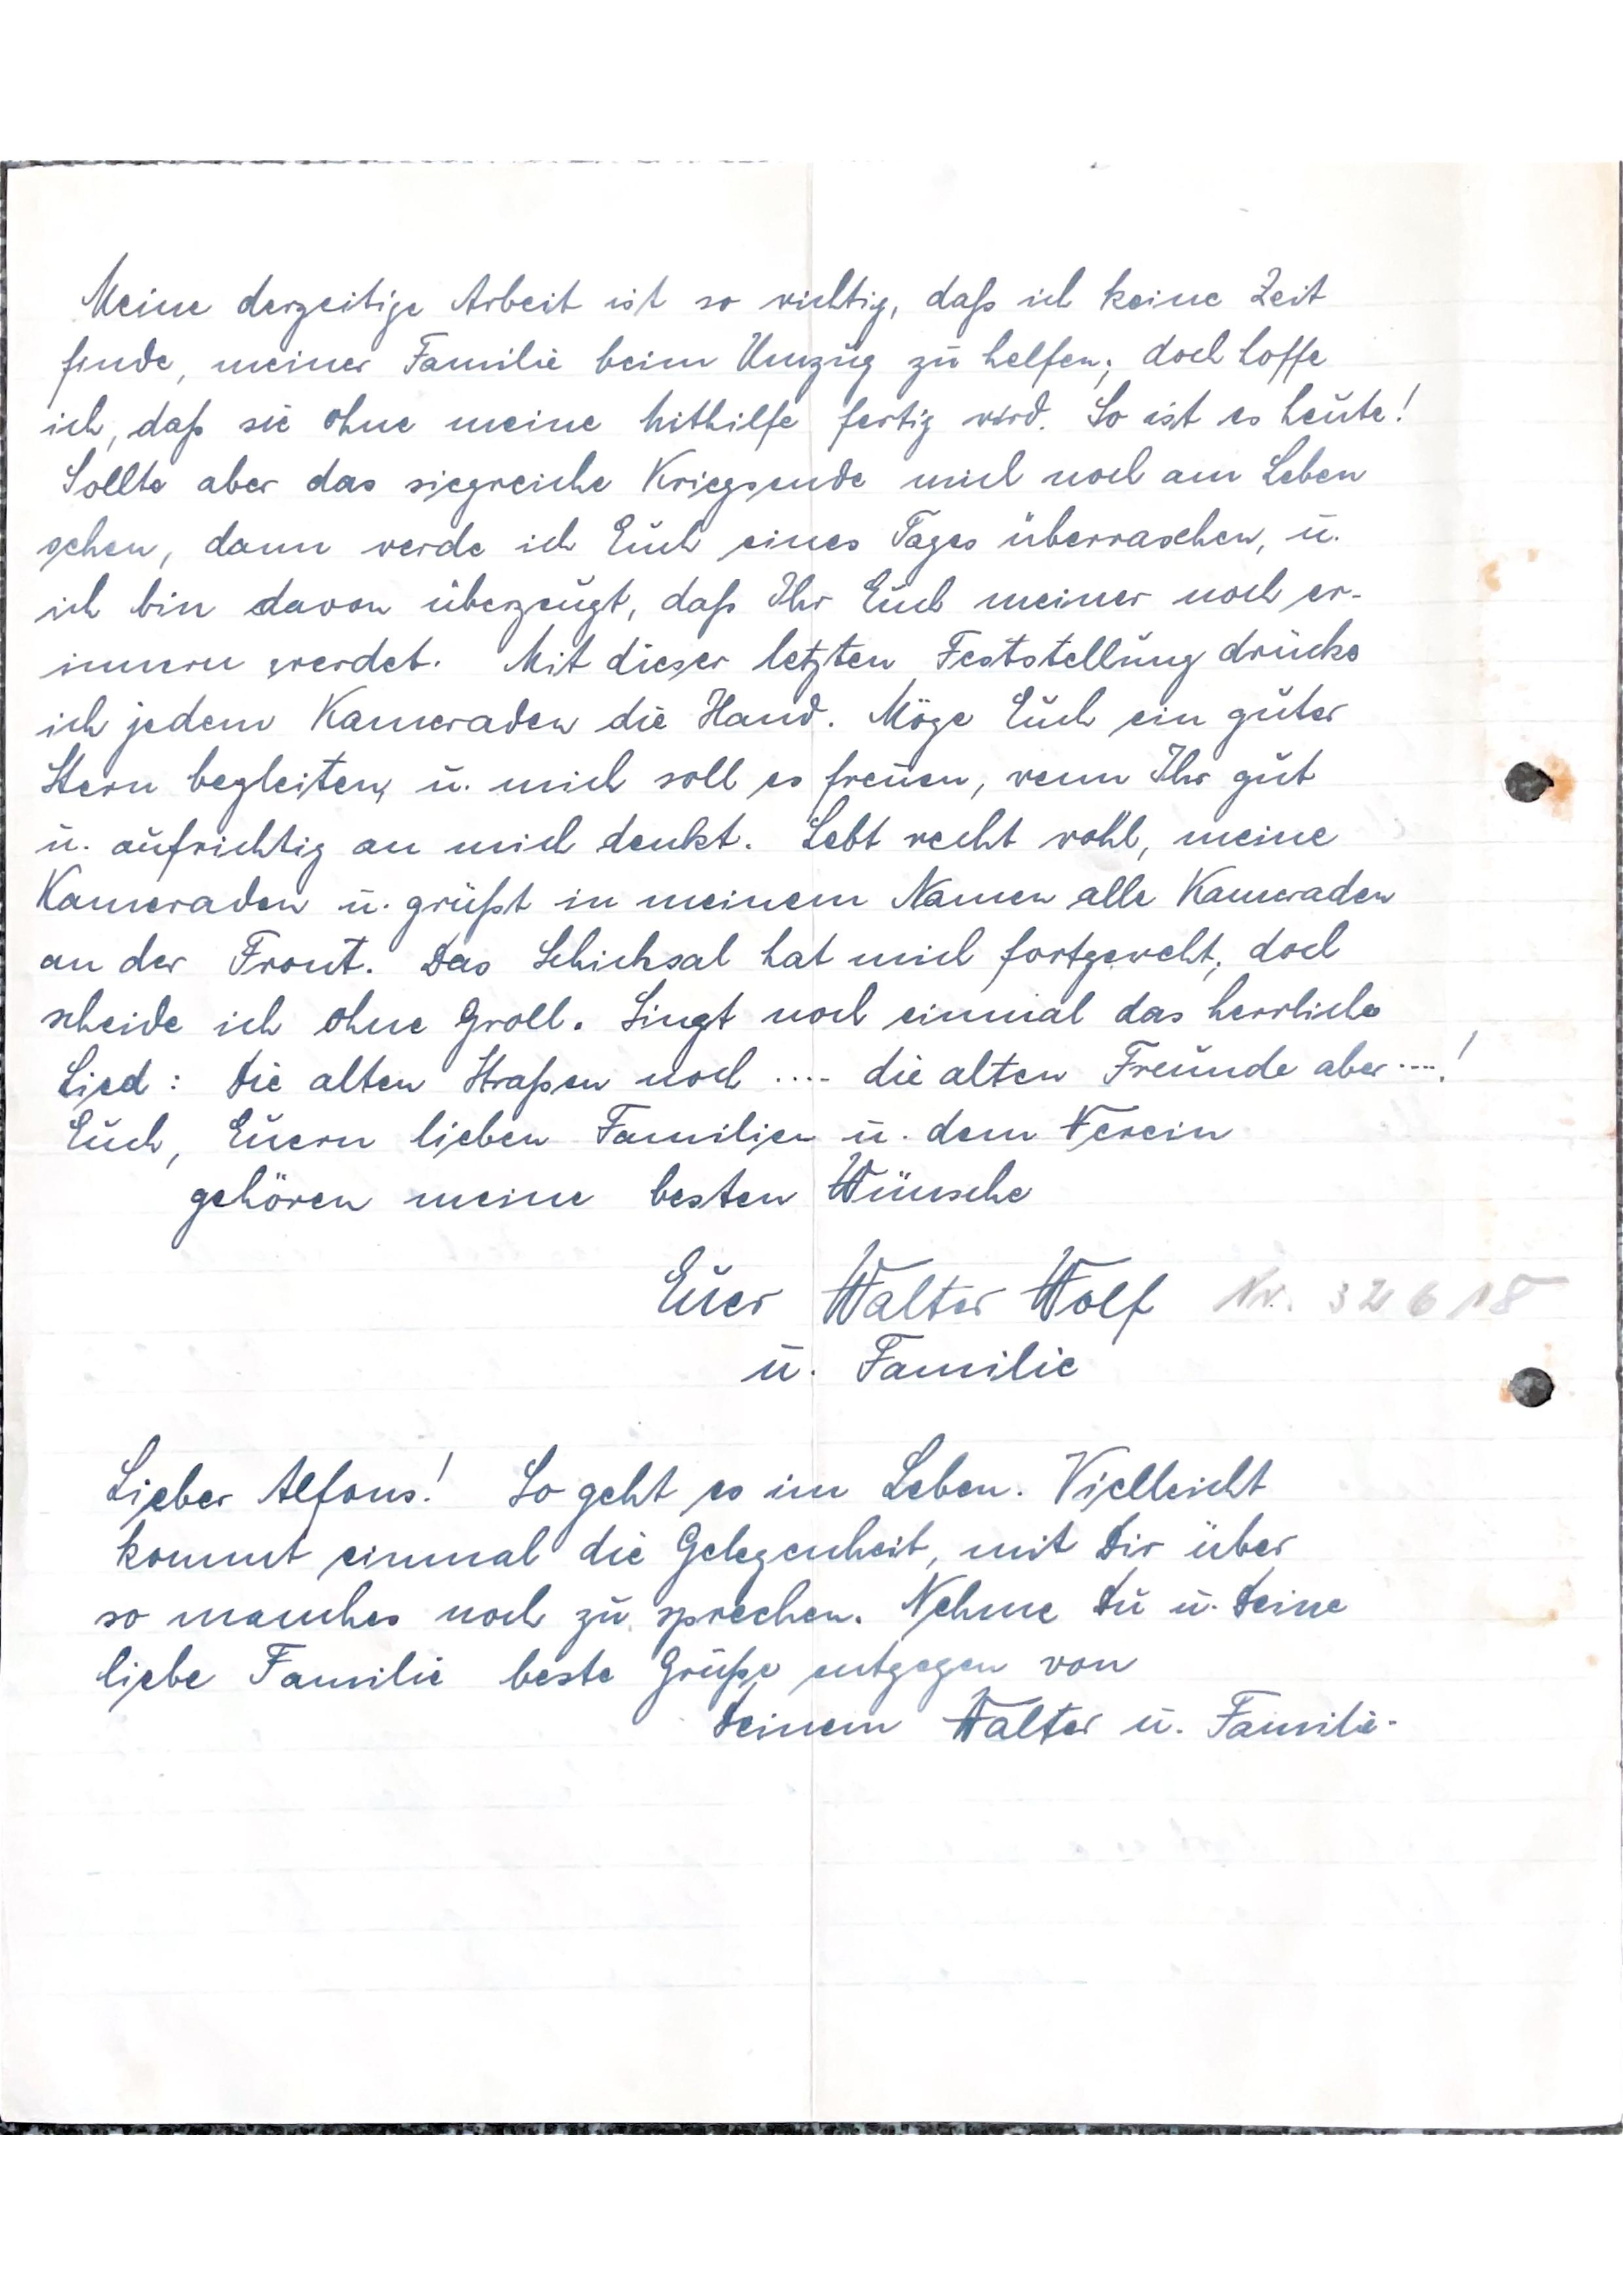 Meine derzeitige Arbeit ist so wichtig, daß ich keine Zeit
finde, meiner Familie beim Umzug zu helfen; doch hoffe
ich, daß sie ohne meine Mithilfe fertig wird. So ist es heute!
Sollte aber das siegreiche Kriegsende mich noch am Leben
sehen, dann werde ich Euch eines Tages überraschen, u.
ich bin davon überzeugt, daß Ihr Euch meiner noch er-
innern werdet. Mit dieser letzten Feststellung drücke
ich jedem Kameraden die Hand. Möge Euch ein guter
Stern begleiten, u. mich soll es freuen, wenn Ihr gut
u. aufrichtig an mich denkt. Lebt recht wohl, meine
Kameraden u. grüßt in meinem Namen alle Kameraden
an der Front. Das Schicksal hat mich fortgeweht; doch
scheide ich ohne Groll. Singt noch einmal das herrliche
Lied: Die alten Straßen noch .... die alten Freunde aber ....!
Euch, Euern lieben Familien u. dem Verein
gehören meine besten Wünsche
Euer Walter Wolf Nr. 32618
u. Familie
Lieber Alfons! So geht es im Leben. Vielleicht
kommt einmal die Gelegenheit, mit Dir über
so manches noch zu sprechen. Nehme Du u. Deine
liebe Familie beste Grüße entgegen von
Deinem Walter u. Familie.